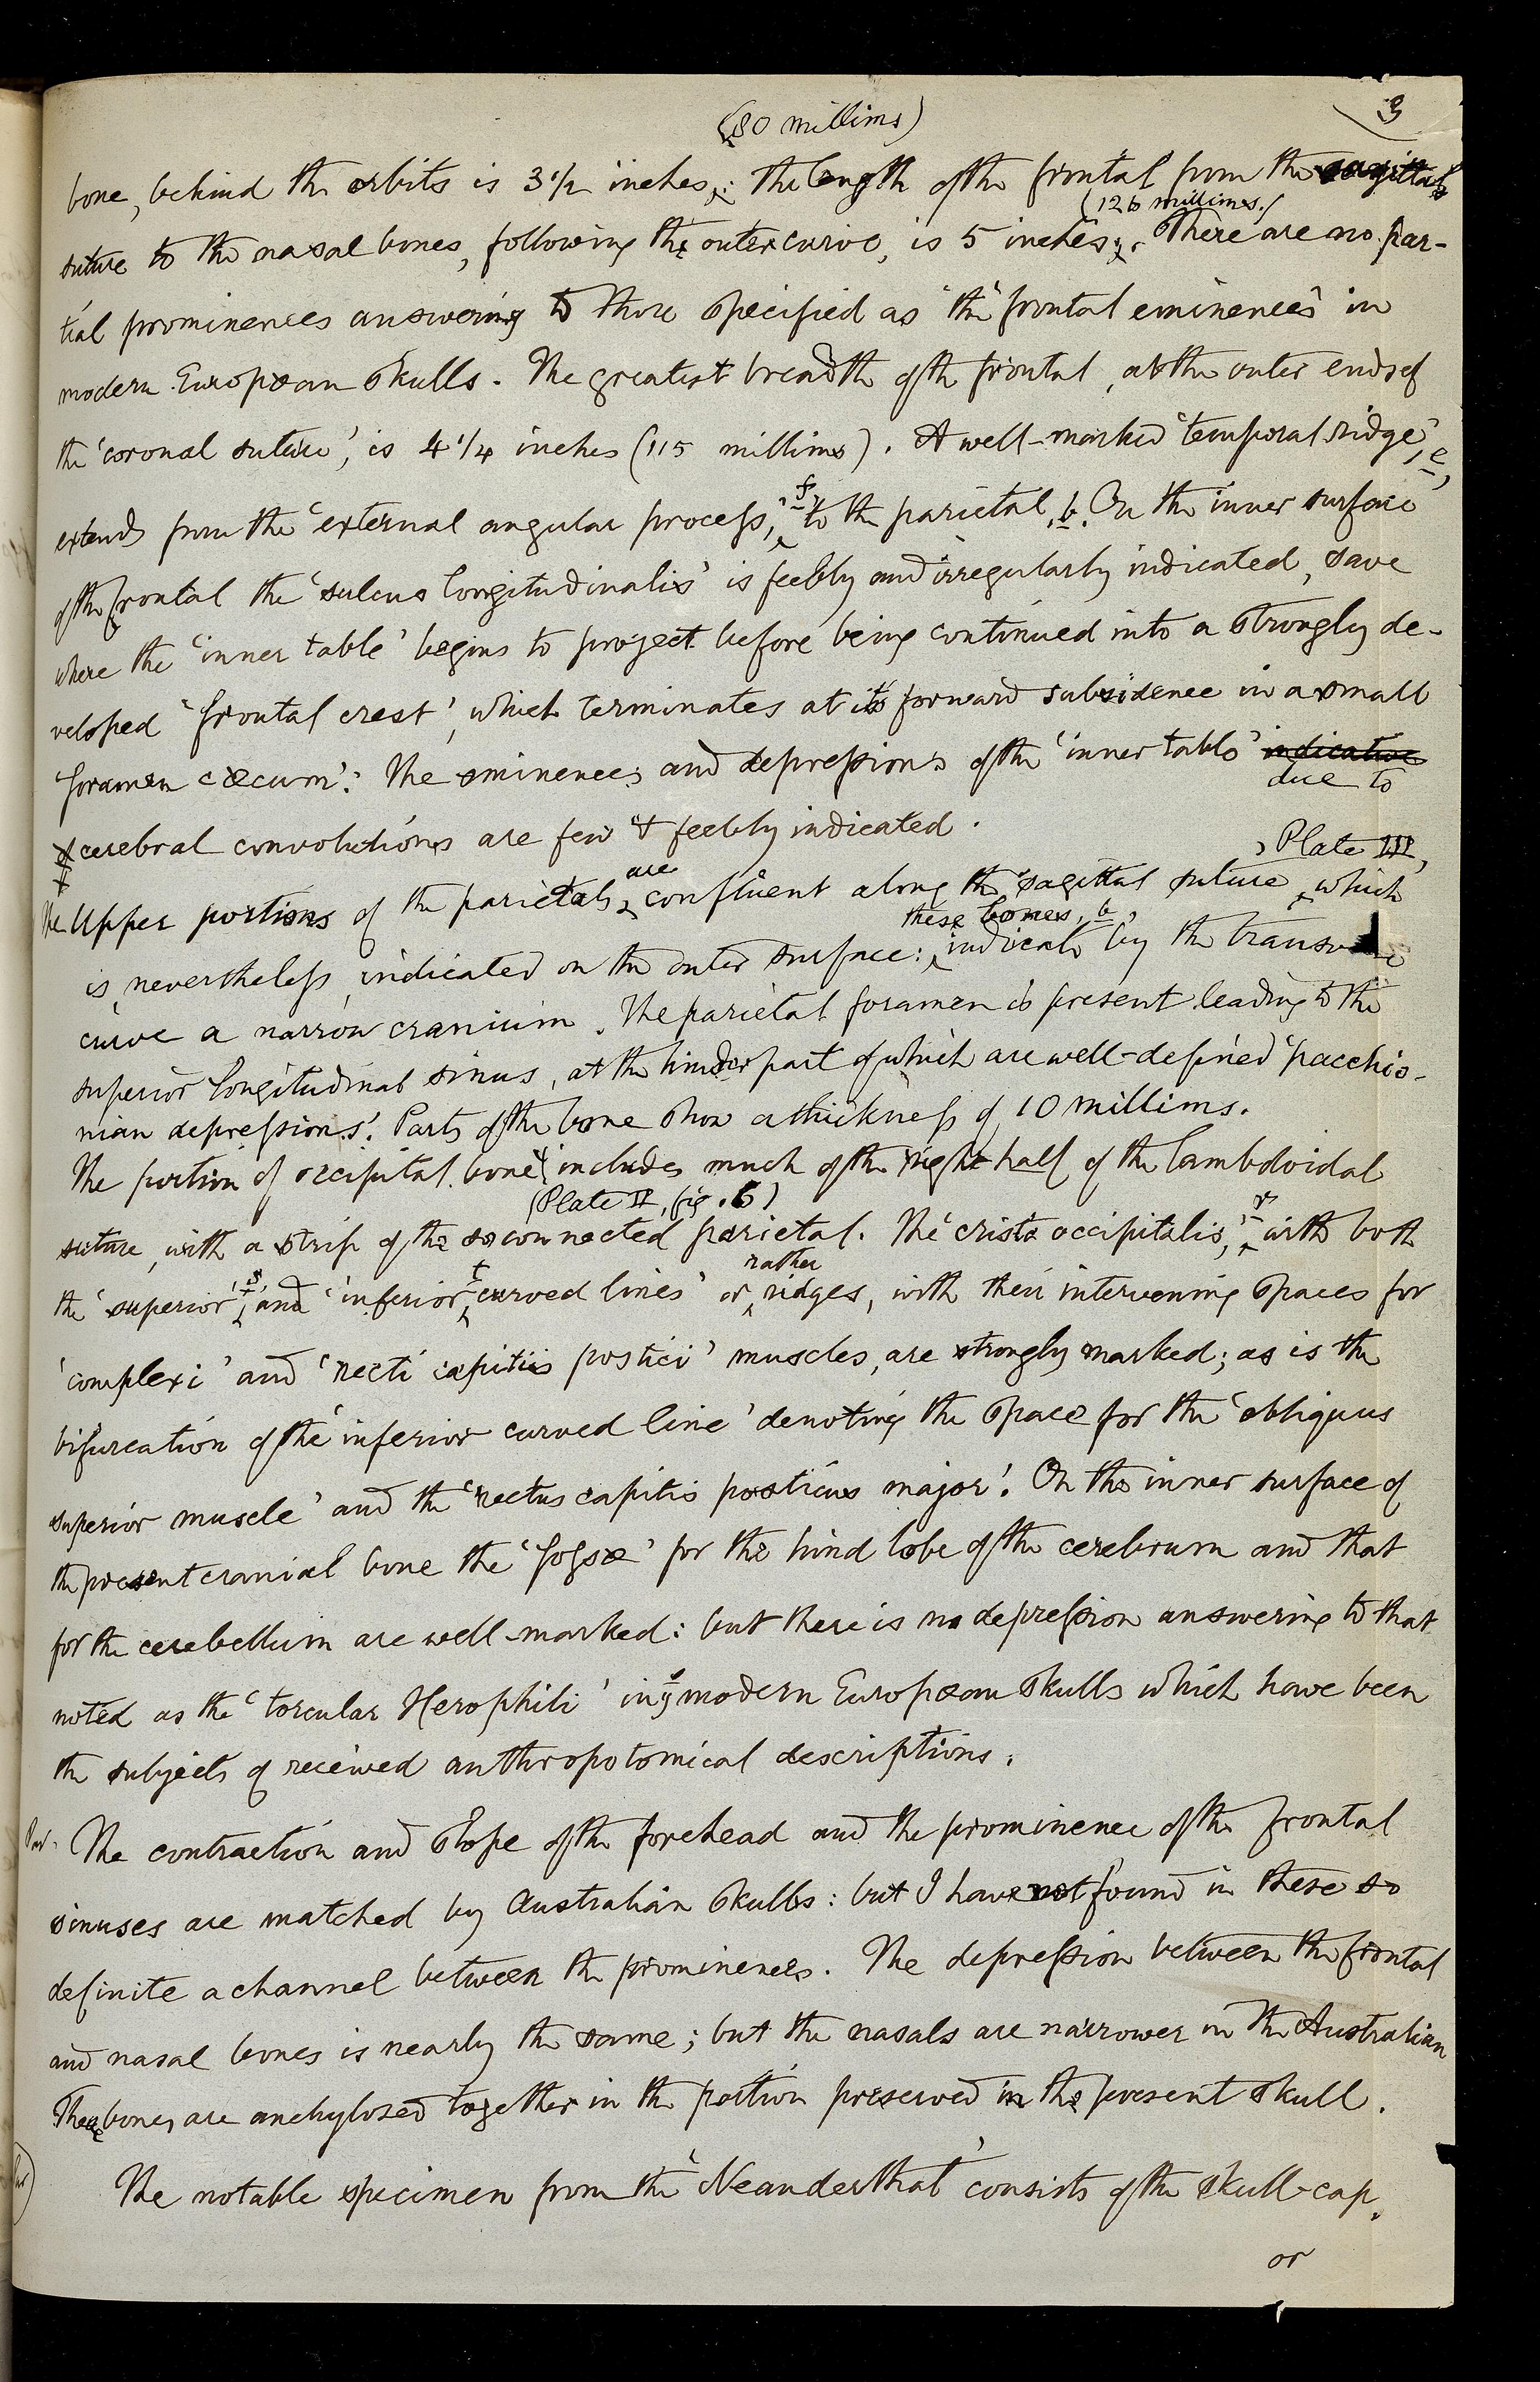 3
(80 millims)
bone, behind the orbits is 3 1/2 inches,: the length of the frontal from the sagittal
(126 millims.)
suture to the nasal bones, following the outer curve, is 5 inches,. There are no par-
tial prominences answering to those specified as 'the frontal eminences' in
modern European Skulls. The greatest breadth of the frontal, at the outer ends of
the 'coronal suture', is 4 1/4 inches (115 millims). A well-marked 'temporal ridge', e,
f,
extends from the 'external angular process,' to the parietal, b. On the inner surface
of the frontal the 'sulcus longitudinalis' is feebly and irregularly indicated, save
where the 'inner table' begins to project before being continued into a strongly de-
veloped 'frontal crest', which terminates at its forward subsidence in a small
'foramen cæcum'. The eminences and depressions of the 'inner table' indicative
due to
cerebral convolutions are few & feebly indicated.
, Plate III,
are
The Upper portions of the parietals, confluent along the 'sagittal suture, which
these bones, b
is, nevertheless, indicated on the outer surface: indicate by the transverse
curve a narrow cranium. The parietal foramen is present leading to the
superior longitudinal sinus, at the hinder part of which are well-defined 'pacchio-
nian depressions'. Parts of the bone show a thickness of 10 millims.
The portion of occipital bone includes much of the right half of the lambdoidal
(Plate II, fig. 6)
suture, with a strip of the so connected parietal. The 'crista occipitalis,' r, with both
s, t rather
the 'superior', and 'inferior, curved lines' or ridges, with their intervening spaces for
'complexi' and 'recti capitis postici' muscles, are strongly marked; as is the
bifurcation of the 'inferior curved line' denoting the space for the 'obliquus
superior muscle' and the 'rectus capitis posticus major'. On the inner surface of
the present cranial bone the 'fossæ' for the hind lobe of the cerebrum and that
for the cerebellum are well-marked: but there is no depression answering to that
noted as the 'torcular Herophili' in modern European Skulls which have been
the subjects of received anthropotomical descriptions.
Par. The contraction and slope of the forehead and the prominence of the frontal
sinuses are matched by Australian Skulls: but I have not found in these so
definite a channel between the prominences. The depression between the frontal
and nasal bones is nearly the same; but the nasals are narrower in the Australian
These bones are anchylosed together in the portion preserved in the present skull.
The notable specimen from the 'Neanderthal' consists of the skull-cap,
or